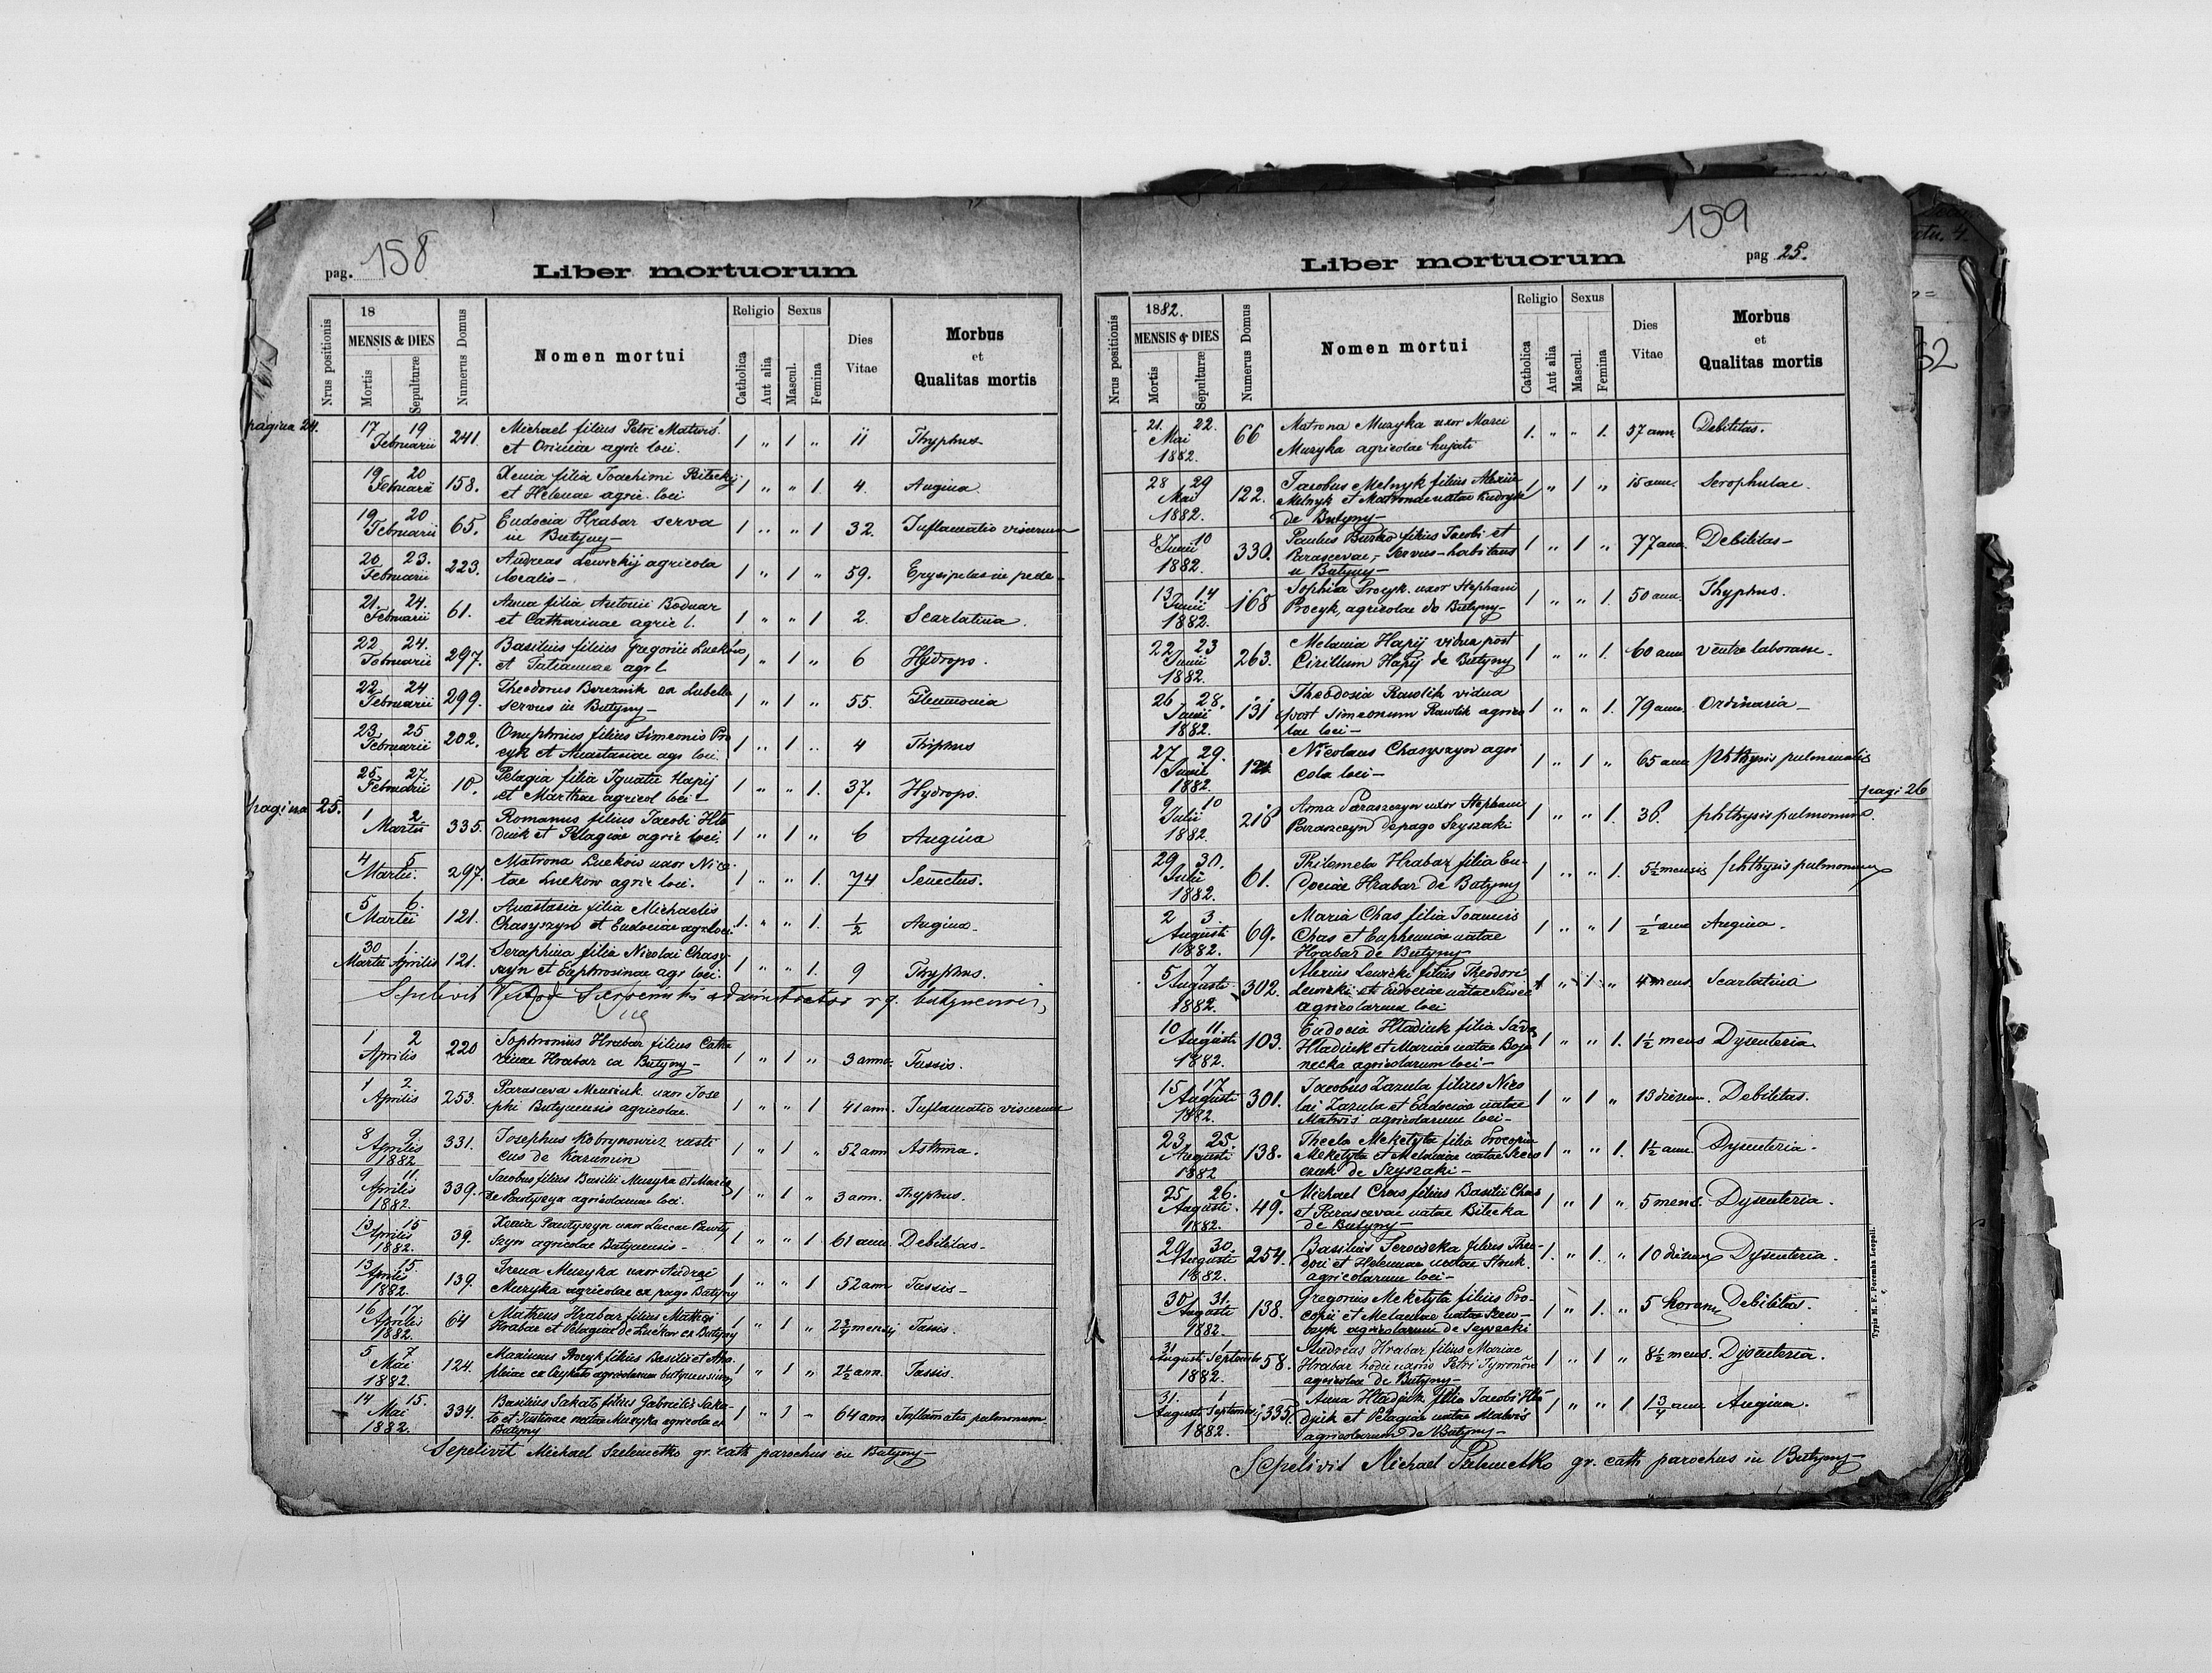 158
pag.
Liber mortuorum
Nrus positionis
18
MENSIS & DIES
Mortis
Sepulturæ
Numerus Domus
Nomen mortui
Religio
Sexus
Catholica
Aut alia
Mascul.
Femina
Dies
Vitae
Morbus
et
Qualitas mortis
pagina 24.
17 19 Februarii 241. Michael filius Petri Matwis 1 " 1 " 11 Thyphus
et agric loci.
19 20 Februarii 158. Xenia filia Joachimi Bilecky 1 " " 1 4. Angina
et Helenae agric. loci
19 20 Februarii 65. Eudocia Hrabar serva 1 " " 1 32. Inflamatio viscerum
in Butyny—
20 23. Februarii 223. Andreas Lewickij agricola 1 " 1 " 59. Erysipelas in pede
localis—
21. 24. Februarii 61. Anna filia Antonii Bodnar 1 " " 1 2. Scarlatina.
et Catharinae agric l.
22 24. Februarii 297. Basilius filius Gregorii Luckow 1 " 1 " 6 Hydrops.
et Tatiannae agr l.
22 24 Februarii 299. Theodorus Bereznik ex Lubella 1 " 1 " 55. Pleumonia
servus in Butyny—
23 25 Februarii 202. Onuphrius filius Simeonis Pro 1 " 1 " 4 Thiphus
cyk et Anastasiae agr loci
25 27. Februarii 10. Pelagia filia Ignatii Hapij 1 " " 1. 37. Hydrops.
et Marthae agricol loci—
pagina 25.
1 2 Martii 335. Romanus filius Jacobi Hla 1 " 1 " 6 Angina
diuk et Pelagiae agric loci.
4 5 Martii. 297. Matrona Luckow uxor Nice 1 " " 1. 74 Senectus.
tae Luckow agric loci.
5 6. Martii 121. Anastasia filia Michaelis 1. " " 1. ½ Angina—
Chasyszyn et Eudociae agr loci
30 1. Martii Aprilis 121. Seraphina filia Nicolai Chasy 1 " " 1. 9 Thyphus.
szyn et Euphrosinae agr loci.
Sepelivit administrator
1 2 Aprilis 220 Sophronius Hrabar filius Catha 1 " 1 " 3 anno. Tussis.
rinae Hrabar ex Butyny—
1 2 Aprilis 253. Parasceva uxor Jose 1 " " 1 41 ann. Inflamatio viscerum
phi Butynensis agricolae.
8 9 Aprilis 1882 331. Josephus Kobrynowicz rusti 1 " 1 " 52 ann Asthma.
cus de Kazumin
9 11. Aprilis 1882. 339. Jacobus filius Basilii Muzyka et Maria 1 " 1 " 3 ann. Thyphus.
de agricolarum loci.
13 15 Aprilis 1882. 39. Xenia Pawtyszyn uxor Luccae Pawty 1 " " 1 61 ann. Debilitas—
szyn agricolae Butynensis—
13 15. Aprilis 1882. 139. Irena Muzyka uxor Andrei 1 " " 1 52 ann Tussis—
Muzyka agricolae ex pago Butyny
16 17 Aprilis 1882. 64 Matheus Hrabar filius Mathei 1 " 1 " Tussis.
Hrabar et Pelagiae de Luckow ex Butyny
5 7 Mai 1882. 124. Maximus Procyk filius Basilii et 1 " 1 " 2½ ann. Tussis.
agricolarum butynensium
14 15. Mai 1882. 334. Basilius Sakato filius Gabrielis Saka 1 " 1 " 64 ann Inflamatio pulmonum
to et Justinae natae Muzyka agricola ex
Butyny
Sepelivit Michael Szelemetko gr. cath parochus in Butyny—
159
pag 25.
Liber mortuorum
Nrus positionis
1882.
MENSIS & DIES
Mortis
Sepulturæ
Numerus Domus
Nomen mortui
Religio
Sexus
Catholica
Aut alia
Mascul.
Femina
Dies
Vitae
Morbus
et
Qualitas mortis
21. 22. Mai 1882. 66 Matrona Muzyka uxor Marci 1. " " 1. 57 ann. Debilitas.
Muzyka agricolae hujati
28 29 Mai 1882. 122. Jacobus Melnyk filius Alexii 1 " 1 " 15 ann. Scrophulae.
Melnyk et Matronae natae Kudryk
de Butyny—
8 10 Junii 1882. 330. Paulus Burko filius Jacobi et 1 " 1 " 77 ann. Debilitas—
Parascevae,— servus—habitans
in Butyny—
13 14 Junii 1882. 168 Sophia Procyk uxor Stephani 1 " " 1. 50 ann. Thyphus.
Procyk, agricolae de Butyny—
22 23 Junii 1882. 263. Melania Hapij vidua post 1 " " 1. 60 ann ventre laborasse.
Cirillum Hapij de Butyny
26 28. Junii 1882. 131 Theodosia Rawlik vidua 1 " " 1. 79 ann. Ordinaria—
post Simeonum Rawlik agrico
lae loci—
27 29. Junii 1882. 121 Nicolaus Chasyszyn agri 1 " 1 " 65 ann phthysis pulmonalis
cola loci—
pagi 26
9 10 Julii 1882. 218 Anna Paraszczyn uxor Stephani 1 " " 1. 36. phthysis pulmonum.
Paraszczyn de pago Szyszaki
29 30. Julii 1882. 61. Philomela Hrabar filia Eu- 1 " " 1. 5½ mensis phthysis pulmonum
dociae Hrabar de Butyny
2 3. Augusti 1882. 69. Maria Chas filia Joannis 1 " " 1 ½ ann Angina.
Chas et Euphemiae natae
Hrabar de Butyny
5 7 Augusti 1882. 302. Alexius Lewicki filius Theodori 1 " 1 " 4 mens. Scarlatina
Lewicki et Eudociae natae
agricolarum loci
10 11. Augusti 1882. 103. Eudocia Hladiuk filia Sava 1 " " 1. 1½ mens Dysenteria
Hladiuk et Mariae natae Boja
necka agricolarum loci—
15 17 Augusti 1882. 301. Jacobus Zazula filius Nico 1 " 1 " 13 dierum. Debilitas.
lai Zazula et Eudociae natae
Matwis agricolarum loci—
23 25. Augusti 1882 138. Thecla Meketyta filia Procopii 1 " " 1. 1½ ann Dysenteria.
Meketyta et Melaniae natae Szew
czuk de Szyszaki—
25 26. Augusti. 1882. 49. Michael Chas filius Basilii Chas 1 " 1 " 5 mens. Dysenteria.
et Parascevae natae Bilecka
de Butyny—
29 30. Augusti 1882. 254. Basilius filius Theo- 1. " 1. " 10 dierum Dysenteria.
dori et Helenae natae
agricolarum loci—
30 31. Augusti 1882. 138. Gregorius Meketyta filius Pro- 1 " 1. " 5 horarum Debilitas.
copii et Melaniae natae Szew—
czyk agricolarum de Szyszaki
31 1 Augusti Septembr 1882. 58. Andreas Hrabar filius Mariae 1 " 1 " 8½ mens. Dysenteria.
Hrabar Petri
agricolae de Butyny—
31. 1 Augusti Septembris 1882. 335. Anna Hladiuk filia Jacobi Hla- 1 " " 1 1¾ ann Angina.
diuk et Pelagiae natae Matwis
agricolarum de Butyny—
Sepelivit Michael Szelemetko gr. cath parochus in Butyny—
Typis M. F. Poremba Leopoli.